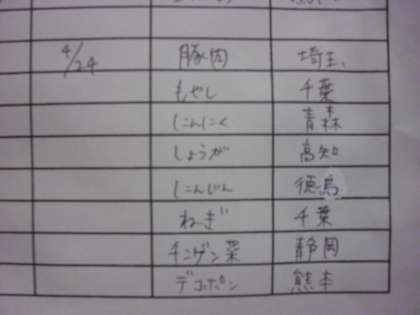 4/24 豚肉 埼玉
もやし 千葉
にんにく 青森
しょうが 高知
にんじん 徳島
ねぎ 千葉
チンゲン菜 静岡
デコポン 熊本